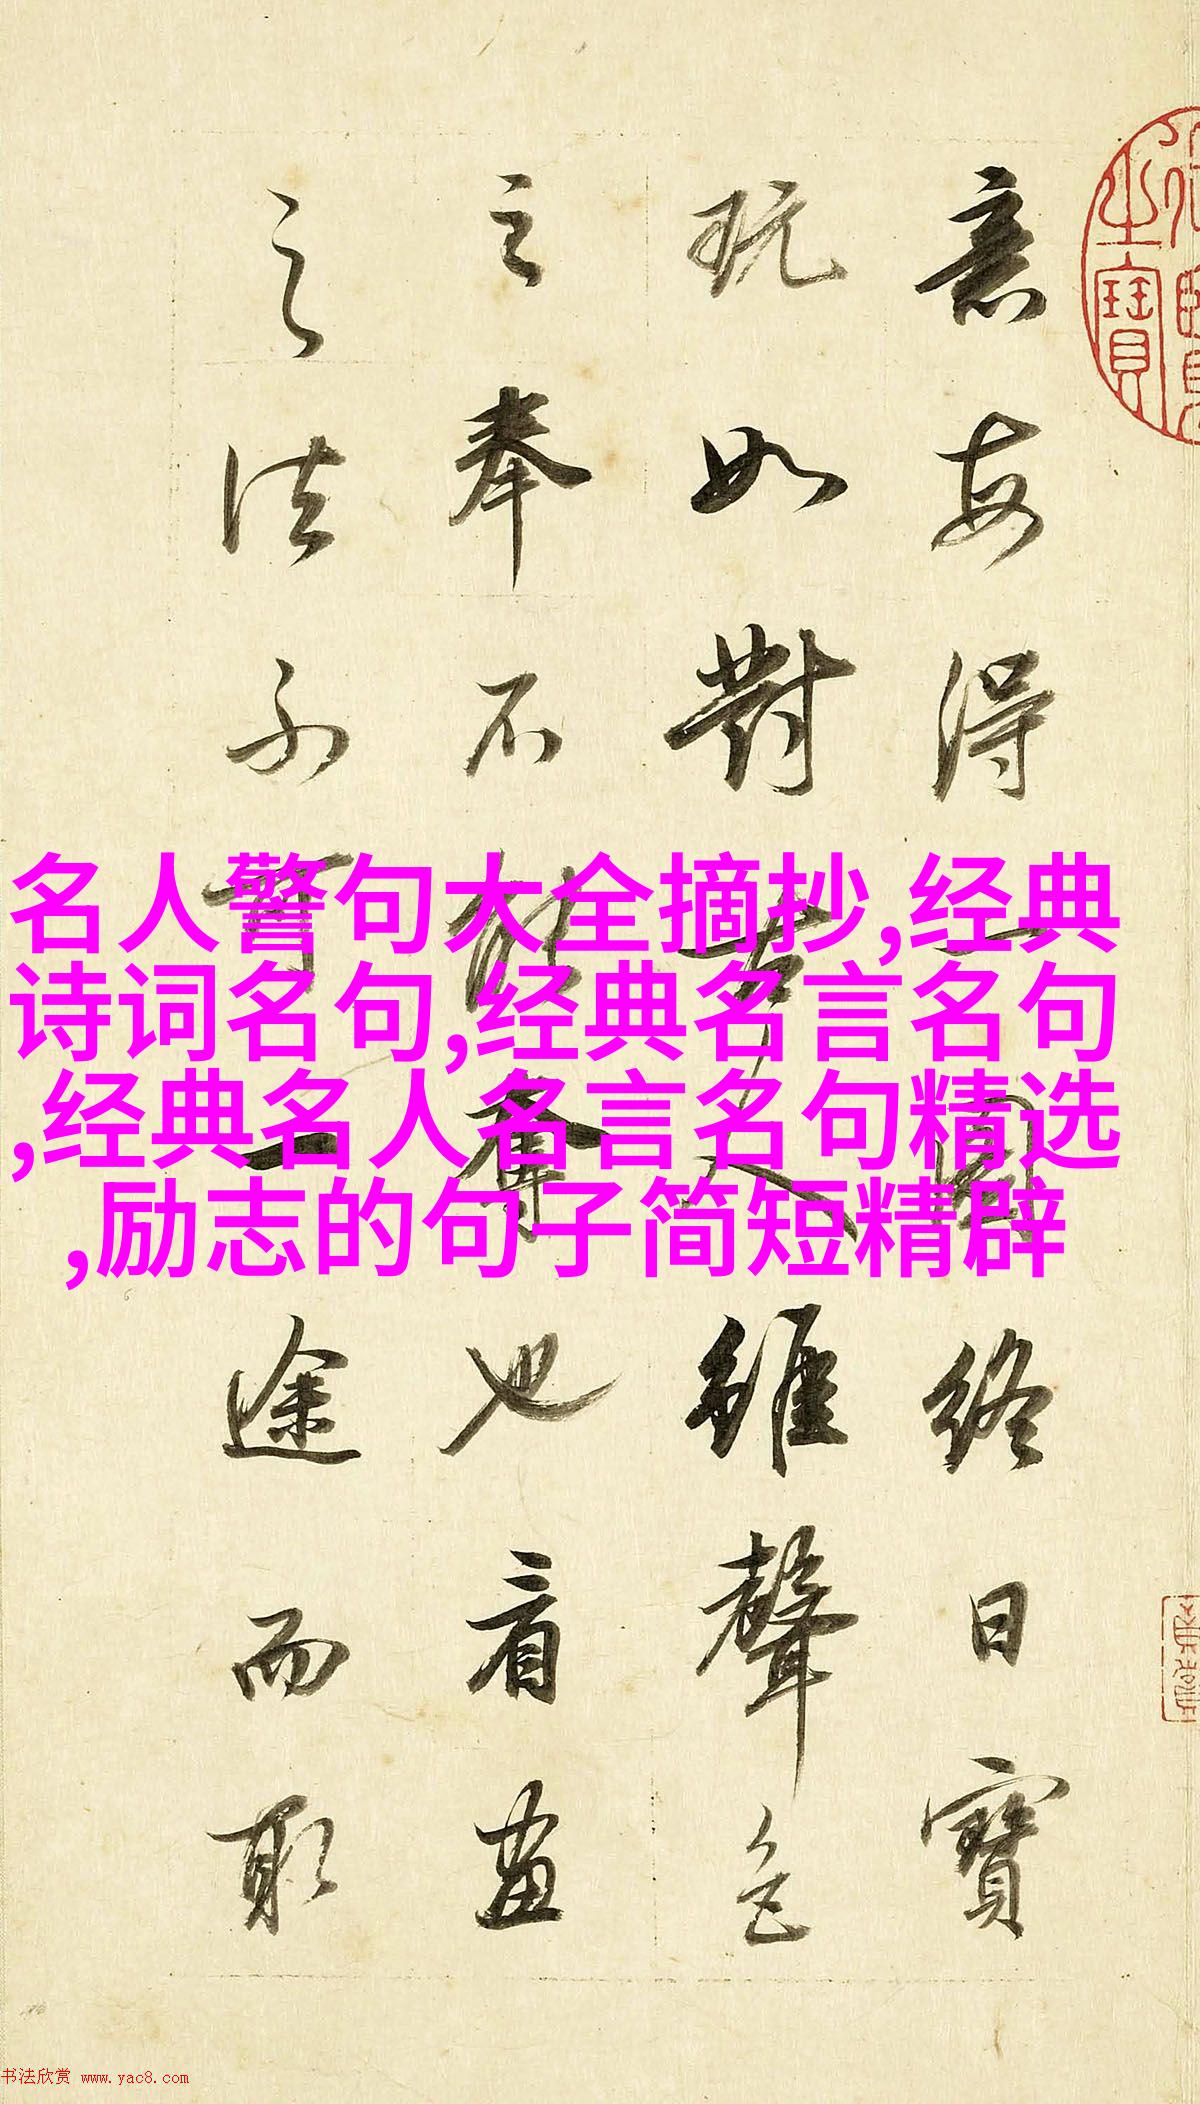 意每得一圖終日寶
玩如對古人雖聲色
之奉不能奪也看畫
之法不可一途而取
名人警句大全摘抄,经典
诗词名句,经典名言名句
,经典名人名言名句精选
,励志的句子简短精辟
书法欣赏 www.yac8.com